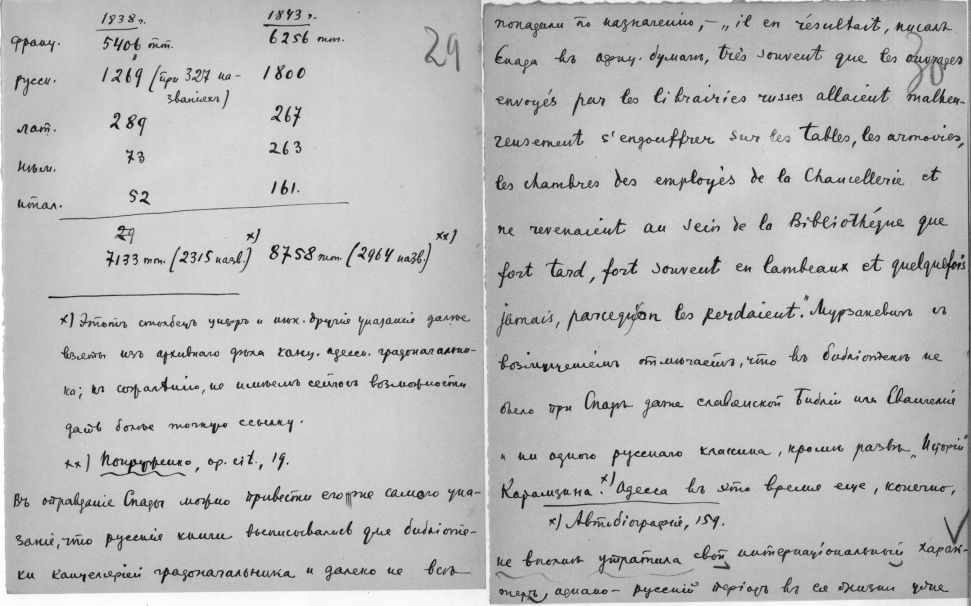 1838 г. 1843 г.
франц. 5406 тт. 6256 тт.
29
русск. 1269 (при 327 на- 1800
званіяхъ)
лат. 289 267
нѣм. 73 263
итал. 52 161.
29
7133 тт. (2315 назв.) х) 8758 тт. (2964 назв.) хх)
х) Этотъ столбецъ цифръ и нѣк. другія указанія далѣе
взяты изъ архивнаго дѣла канц. одесск. градоначальни-
ка; къ сожалѣнію, не имѣемъ сейчасъ возможности
дать болѣе точную ссылку.
хх) Попруженко, op. cit., 19.
Въ оправданіе Спады можно привести его же самого ука-
заніе, что русскія книги выписывались для библіоте-
ки канцеляріей градоначальника и далеко не всѣ
30
попадали по назначенію, – „il en résultait, писалъ
Спада въ офиц. бумагѣ, très souvent que les ouvrages
envoyés par les librairies russes allaient malheu-
reusement s'engouffrer sur les tables, les armoires,
les chambres des employés de la Chancellerie et
ne revenaient au sein de la Bibliothéque que
fort tard, fort souvent en lambeaux et quelquefois
jamais, parcequ'on les perdaient". Мурзакевичъ съ
возмущеніемъ отмѣчаетъ, что въ библіотекѣ не
было при Спадѣ даже славянской Библіи или Евангелія
и ни одного русскаго классика, кромѣ развѣ „Исторіи"
Карамзина. х) Одесса въ это время еще, конечно,
х) Автобіографія, 159.
не вполнѣ утратила свой интернаціональный харак-
теръ, однако русскій періодъ въ ея жизни уже